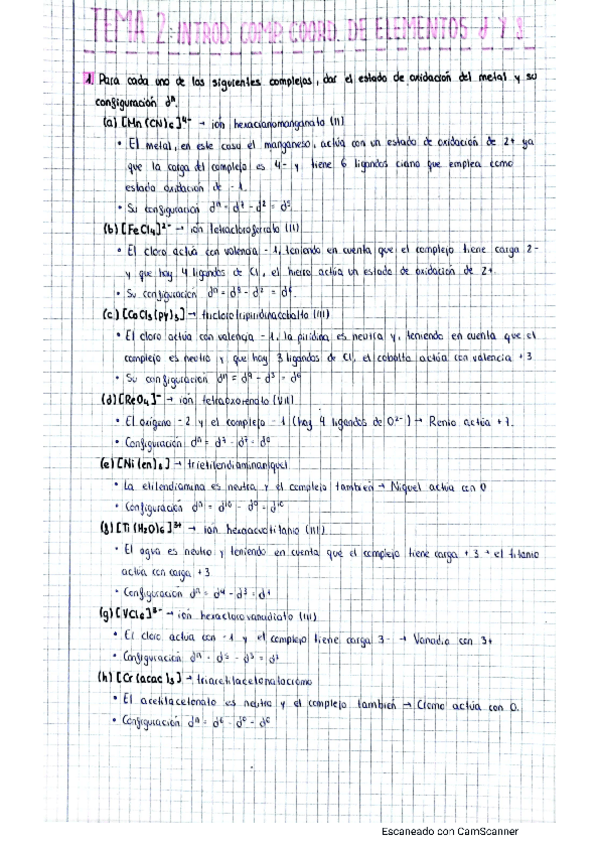 TEMA 2: INTROD. COMP. COORD. DE ELEMENTOS d Y f
1 Para cada uno de los siguientes complejos, dar el estado de oxidación del metal y su
configuración dⁿ.
(a) [Mn(CN)₆]⁴⁻ → ión hexacianomanganato (II)
• El metal, en este caso el manganeso, actúa con un estado de oxidación de 2+ ya
que la carga del complejo es 4- y tiene 6 ligandos ciano que emplea como
estado oxidación de -1.
• Su configuración dⁿ = d⁷ - d² = d⁵
(b) [FeCl₄]²⁻ → ión tetracloroferrato (II)
• El cloro actúa con valencia -1, teniendo en cuenta que el complejo tiene carga 2-
y que hay 4 ligandos de Cl, el hierro actúa un estado de oxidación de 2+.
• Su configuración dⁿ = d⁸ - d² = d⁶.
(c) [CoCl₃(py)₃] → triclorotripiridinacobalto (III)
• El cloro actúa con valencia -1, la piridina es neutra y, teniendo en cuenta que el
complejo es neutro y que hay 3 ligandos de Cl, el cobalto actúa con valencia +3
• Su configuración dⁿ = d⁹ - d³ = d⁶
(d) [ReO₄]⁻ → ión tetraoxorenato (VII)
• El oxígeno -2 y el complejo -1 (hay 4 ligandos de O²⁻) → Renio actúa +7.
• Configuración dⁿ = d⁷ - d⁷ = d⁰
(e) [Ni(en)₃] → trietilendiaminaniquel
• La etilendiamina es neutra y el complejo también → Niquel actúa con 0
• Configuración dⁿ = d¹⁰ - d⁰ = d¹⁰
(g) [Ti(H₂O)₆]³⁺ → ión hexaacuotitanio (III)
• El agua es neutro y teniendo en cuenta que el complejo tiene carga +3 → el titanio
actúa con carga +3
• Configuración dⁿ = d⁴ - d³ = d¹
(g) [VCl₆]³⁻ → ión hexaclorovanadiato (III)
• El cloro actua con -1 y el complejo tiene carga 3- → Vanadio con 3+
• Configuración dⁿ = d⁵ - d³ =
(h) [Cr(acac)₃] → triacetilacetonatocromo
• El acetilacetonato es neutro y el complejo también → Cromo actúa con 0.
• Configuración dⁿ = d⁶ - d⁰ = d⁶
Escaneado con CamScanner